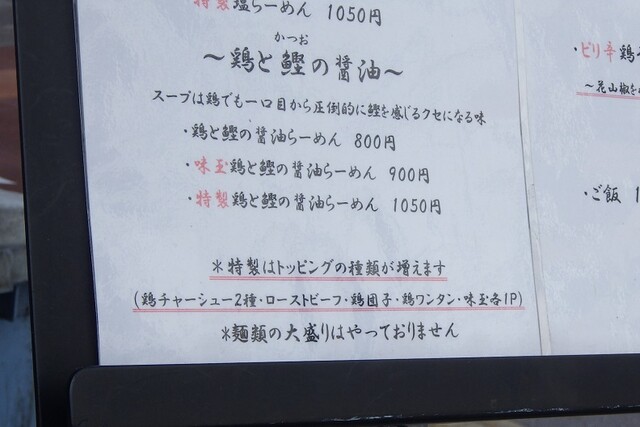 特製塩らーめん 1050円
かつお
～鶏と鰹の醤油～
スープは鶏でも一口目から圧倒的に鰹を感じるクセになる味
・鶏と鰹の醤油らーめん 800円
・味玉鶏と鰹の醤油らーめん 900円
・特製鶏と鰹の醤油らーめん 1050円
＊特製はトッピングの種類が増えます
(鶏チャーシュー2種・ローストビーフ・鶏団子・鶏ワンタン・味玉各1P)
＊麺類の大盛りはやっておりません
・ピリ辛鶏
～花山椒を
・ご飯 1